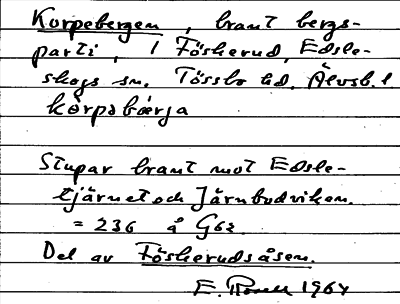 Korpebergen, brant bergs-
parti, i Föskerud, Edsle-
skogs sn. Tössbo hd. Älvsb. l
kò̀rpəbæ̀rja
Stupar brant mot Edsle-
tjärnet och Järnbodviken.
= 236 å G62
Del av Föskerudsåsen.
E. 1964